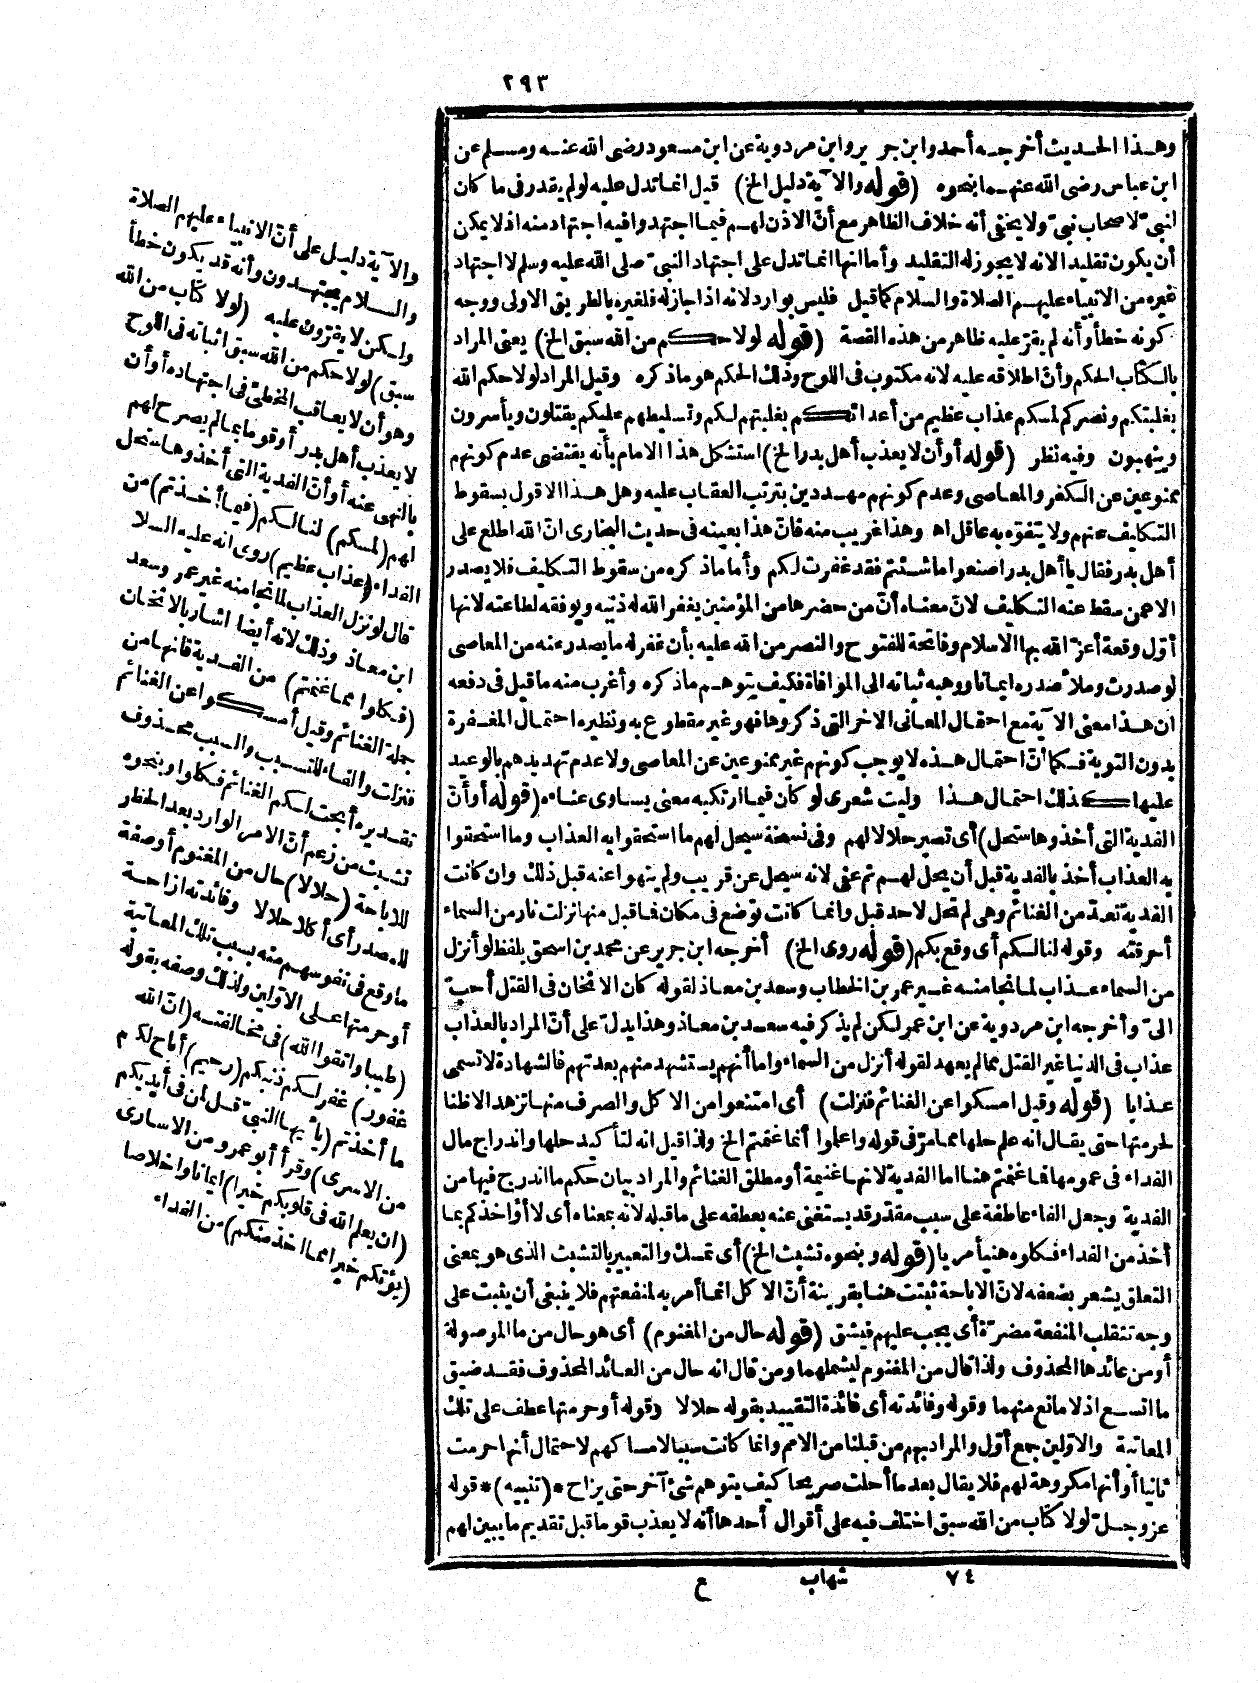 ٢٩٣
وهذا الحديث أخرجه أحمد وابن جرير وابن مردوية عن ابن مسعود رضى الله عنه ومسلم عن
ابن عباس رضى الله عنهما بنحوه (قوله والآية دليل الخ) قيل انما تدل عليه لو لم يقدر فى ما كان
لنبىّ لاصحاب نبىّ ولا يخفى أنه خلاف الظاهر مع أنّ الاذن لهم فيما اجتهدوا فيه اجتهاد منه اذ لا يمكن
أن يكون تقليدا لانه لا يجوز له التقليد وأما انها انما تدل على اجتهاد النبىّ صلى الله عليه وسلم لا اجتهاد
غيره من الانبياء عليهم الصلاة والسلام كما قيل فليس بوارد لانه اذا جاز له فلغيره بالطريق الاولى ووجه
كونه خطأ وأنه لم يقرّ عليه ظاهر من هذه القصة (قوله لولا حكم من الله سبق الخ) يعنى المراد
بالكتاب الحكم وأنّ اطلاقه عليه لانه مكتوب فى اللوح وذلك الحكم هو ما ذكره وقيل المراد لولا حكم الله
بغلبتكم ونصركم لمسكم عذاب عظيم من أعدائكم بغلبتهم لكم وتسليطهم عليكم يقتلون ويأسرون
وينهبون وفيه نظر (قوله أو أن لا يعذب أهل بدر الخ) استشكل هذا الامام بأنه يقتضى عدم كونهم
ممنوعين عن الكفر والمعاصى وعدم كونهم مهددين بترتب العقاب عليه وهل هذا الا قول بسقوط
التكاليف عنهم ولا يتفوّه به عاقل اه وهذا غريب منه فانّ هذا بعينه فى حديث البخارى انّ الله اطلع على
أهل بدر فقال يا أهل بدر اصنعوا ما شئتم فقد غفرت لكم وأما ما ذكره من سقوط التكاليف فلا يصدر
الا عمن سقط عنه التكليف لانّ معناه أنّ من حضرها من المؤمنين يغفر الله له ذنبه ويوفقه لطاعته لانها
أوّل وقعة أعزّ الله بها الاسلام وفاتحة للفتوح والنصر من الله عليه بأن غفر له ما يصدر عنه من المعاصى
لو صدرت وملأ صدره ايمانا ووهبه ثباته الى الموافاة فكيف يتوهم ما ذكره وأغرب منه ما قيل فى دفعه
ان هذا معنى الآية مع احتمال المعانى الاخر التى ذكروها فهو غير مقطوع به ونظيره احتمال المغفرة
بدون التوبة فكما أنّ احتمال هذه لا يوجب كونهم غير ممنوعين عن المعاصى ولا عدم تهديدهم بالوعيد
عليها كذلك احتمال هذا وليت شعرى لو كان فيما ارتكبه معنى يساوى عناءه (قوله أو أنّ
الفدية التى أخذوها ستحل) أى تصير حلالا لهم وفى نسخة سيحل لهم ما استحقوا به العذاب وما استحقوا
به العذاب أخذ بالفدية قبل أن يحل لهم ثم عفى لانه سيحل عن قريب ولم ينهوا عنه قبل ذلك وان كانت
الفدية تعدّ من الغنائم وهى لم تحل لاحد قبل وانما كانت توضع فى مكان فما قبل منها نزلت نار من السماء
أحرقته وقوله لنالكم أى وقع بكم (قوله روى الخ) أخرجه ابن جرير عن محمد بن اسحق بلفظ لو أنزل
من السماء عذاب لما نجا منه غير عمر بن الخطاب وسعد بن معاذ لقوله كان الاثخان فى القتل أحبّ
الىّ وأخرجه ابن مردوية عن ابن عمر لكن لم يذكر فيه سعد بن معاذ وهذا يدلّ على أنّ المراد بالعذاب
عذاب فى الدنيا غير القتل مما لم يعهد لقوله أنزل من السماء واما أنهم يستشهد منهم بعدتهم فالشهادة لا تسمى
عذابا (قوله وقيل امسكوا عن الغنائم فنزلت) أى امتنعوا من الاكل والصرف منها تزهدا لا ظنا
لحرمتها حتى يقال انه علم حلها مما مرّ فى قوله واعلموا أنما غنمتم الخ ولذا قيل انه لتأكيد حلها واندراج مال
الفداء فى عمومها فما غنمتم هنا اما الفدية لانها غنيمة أو مطلق الغنائم والمراد بيان حكم ما اندرج فيها من
الفدية وجعل الفاء عاطفة على سبب مقدّر قد يستغنى عنه بعطفه على ما قبله لانه بمعناه أى لا أؤاخذكم بما
أخذ من الفداء فكلوه هنيأ مريا (قوله وبنحوه تشبث الخ) أى تمسك والتعبير بالتشبث الذى هو بمعنى
التعلق يشعر بضعفه لانّ الاباحة ثبتت هنا بقرينة أنّ الاكل انما أمر به لمنفعتهم فلا ينبغى أن يثبت على
وجه تنقلب المنفعة مضرّة أى يجب عليهم فيشق (قوله حال من المغنوم) أى هو حال من ما الموصولة
أو من عائدها المحذوف ولذا قال من المغنوم ليشملهما ومن قال انه حال من العائد المحذوف فقد ضيق
ما اتسع اذ لا مانع منهما وقوله وفائدته أى فائدة التقييد بقوله حلالا (قوله أو حرمتها عطف على تلك
المعاتبة والاوّلين جمع أوّل والمراد بهم من قبلنا من الامم وانما كانت سببا لامساكهم لاحتمال أنها حرمت
ثانيا أو أنها مكروهة لهم فلا يقال بعد ما أحلت صريحا كيف يتوهم شئ آخر حتى يزاح * (تنبيه) * قوله
عز وجلّ لولا كتاب من الله سبق اختلف فيه على أقوال أحدها أنه لا يعذب قوما قبل تقديم ما يبين لهم
٧٤ شهاب ع
والآية دليل على أنّ الانبياء عليهم الصلاة
والسلام يجتهدون وأنه قد يكون خطأ
ولكن لا يقرّون عليه (لولا كتاب من الله
سبق) لولا حكم من الله سبق اثباته فى اللوح
وهو أن لا يعاقب المخطئ فى اجتهاده أو أن
لا يعذب أهل بدر أو قوما بما لم يصرح لهم
بالنهى عنه أو أنّ الفدية التى أخذوها ستحل
لهم (لمسكم) لنالكم (فيما أخذتم) من
الفداء (عذاب عظيم) روى انه عليه السلا
قال لو نزل العذاب لما نجا منه غير عمر وسعد
ابن معاذ وذلك لانه أيضا اشار بالاثخان
(فكلوا مما غنمتم) من الفدية فانها من
جملة الغنائم وقيل أمسكوا عن الغنائم
فنزلت والفاء للتسبب والسبب محذوف
تقديره أبحت لكم الغنائم فكلوا وبنحوه
تشبث من زعم أنّ الامر الوارد بعد الحظر
للاباحة (حلالا) حال من المغنوم أو صفة
للمصدر أى أكلا حلالا وفائدته ازاحة
ما وقع فى نفوسهم منه بسبب تلك المعاتبة
أو حرمتها على الاوّلين ولذلك وصفه بقوله
(طيبا واتقوا الله) فى مخالفته (انّ الله
غفور) غفر لكم ذنبكم (رحيم) أباح لكم
ما أخذتم (يا أيها النبىّ قل لمن فى أيديكم
من الاسرى) وقرأ أبو عمرو من الاسارى
(ان يعلم الله فى قلوبكم خيرا) ايمانا واخلاصا
(يؤتكم خيرا مما اخذ منكم) من الفداء